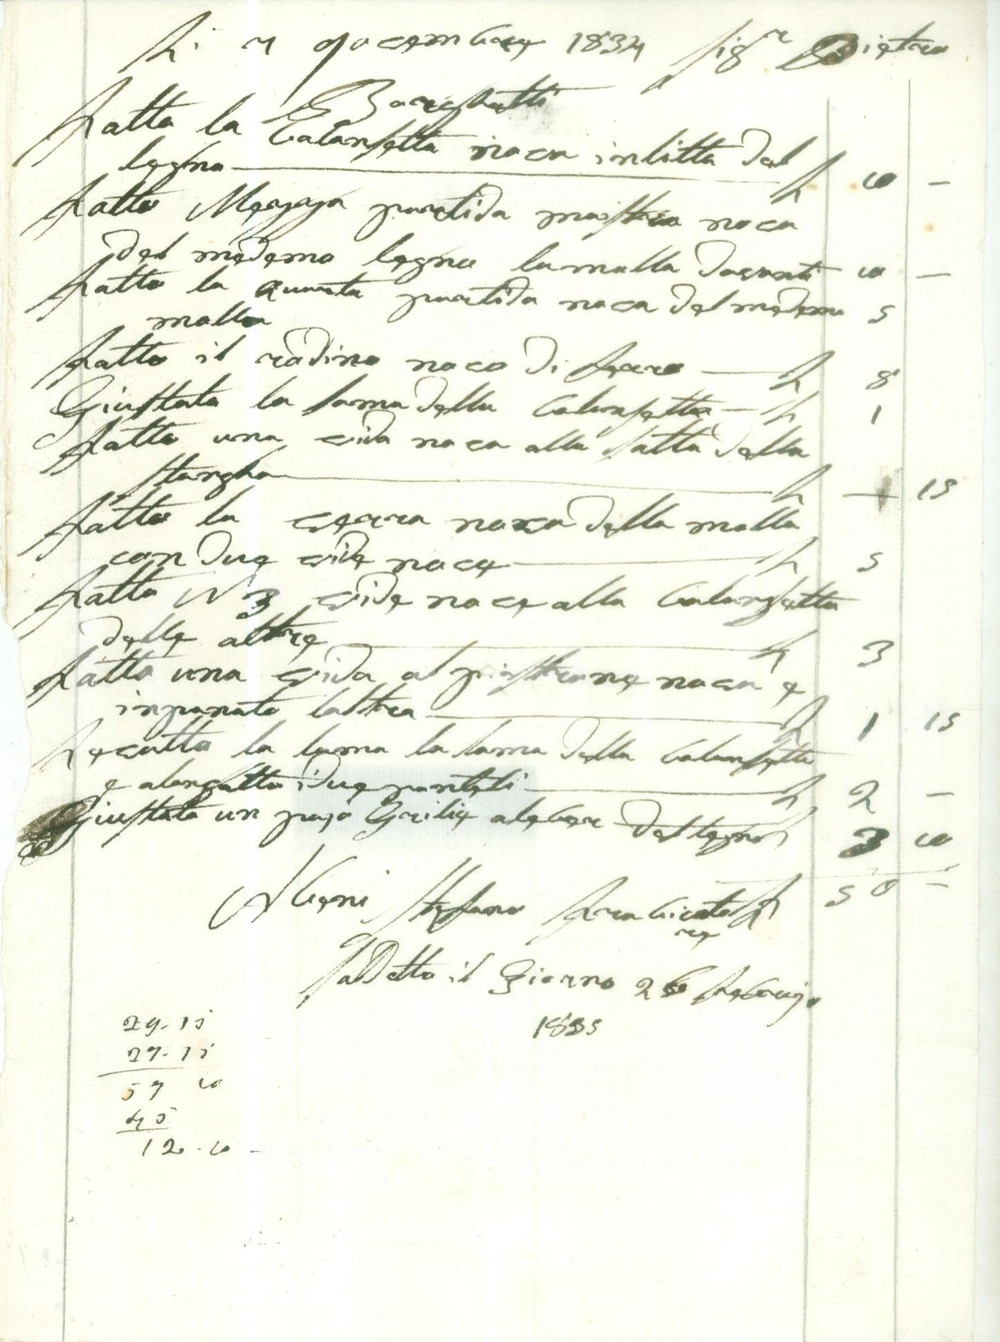 Li 2 docembere 1834 Sigr Pietro
Boreghatti
Fatto la Balansetta noca in litta del
legno L 10 -
Fatto Mezaja partida mastra noca
del medemo legno la molla davanti 10 -
Fatto la quarta partida noca del medemo 5
molla
Fatto il rodino noco di ferro L 8
Giustata la lama della balansetta L 1
Fatto una vida noca alla satta della
stangha L - 15
Fatto la cerra noxa della molla
con due vide noce L 5
Fatto N 3 vide noce alla balansetta
delle altre L 3
Fatto una vida al piastrone noca e
inpanato laltra L 1 15
la lama la lama della balansetta
e alongatto i due ponteli L 2 -
Giustato un pajo Grilie del legno L 3 10
L 50 -
Alberni Stefano
saldatto il Giorno 26 Febrajo
1835
29.15
27.15
57 10
45
12.10 -